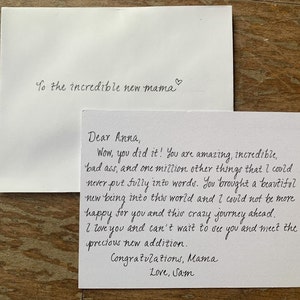 To the incredible new mama♡
Dear Anna,
Wow, you did it! You are amazing, incredible,
bad ass, and one million other things that I could
never put fully into words. You brought a beautiful
new being into this world and I could not be more
happy for you and this crazy journey ahead.
I love you and can't wait to see you and meet the
precious new addition.
Congratulations, Mama
Love, Sam